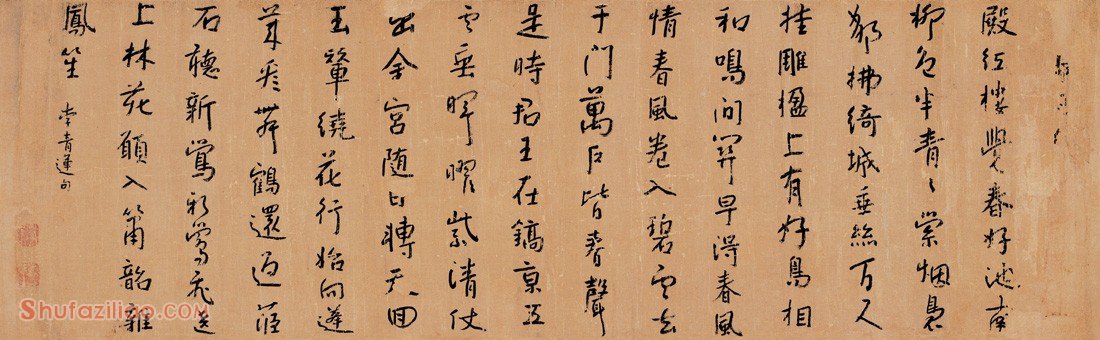 殿紅樓覺春好池南
柳色半青々縈烟裊
娜拂綺城垂絲万尺
挂雕楹上有好鳥相
和鳴間關早得春風
情春風卷入碧雲去
千門萬戶皆春聲
是時君王在鎬京五
雲垂暉曜紫清仗
出金宮随日轉天回
玉輦繞花行始向蓬
萊看舞鶴還過茝
石聽新鶯新鶯飛遶
上林苑願入簫韶雜
鳳笙 李青蓮句
Shufaziliao.COM